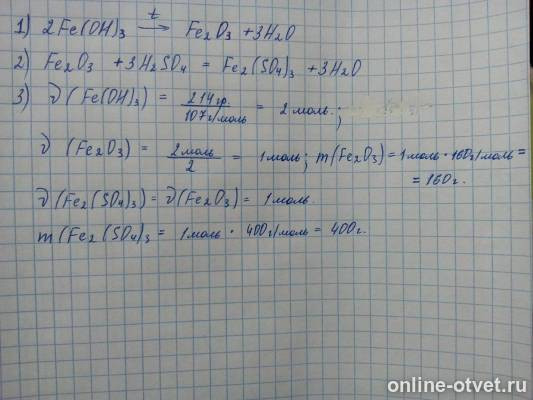 1) 2Fe(OH)₃ —t→ Fe₂O₃ + 3H₂O
2) Fe₂O₃ + 3H₂SO₄ = Fe₂(SO₄)₃ + 3H₂O
3) ν(Fe(OH)₃) = 214гр. / 107г/моль = 2 моль.;
ν (Fe₂O₃) = 2моль / 2 = 1моль; m(Fe₂O₃) = 1моль · 160г/моль =
= 160г.
ν(Fe₂(SO₄)₃) = ν(Fe₂O₃) = 1моль.
m(Fe₂(SO₄)₃ = 1моль · 400г/моль = 400г.
online-otvet.ru